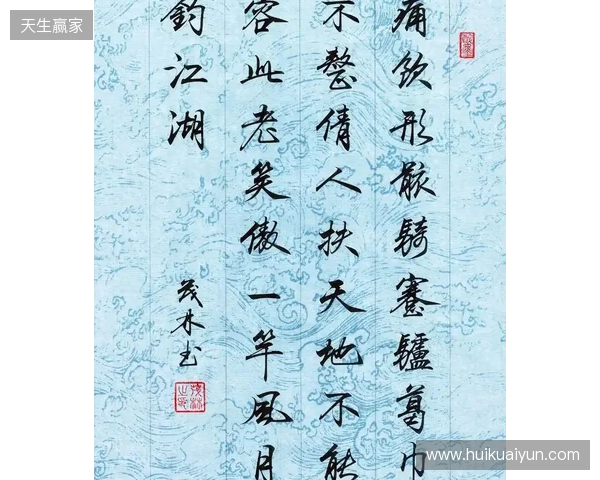 天生赢家
痛飲形骸騎蹇驢葛巾
不整倩人扶天地不能
容此老笑傲一竿風月
釣江湖
茂林书
www.huikuaiyun.com